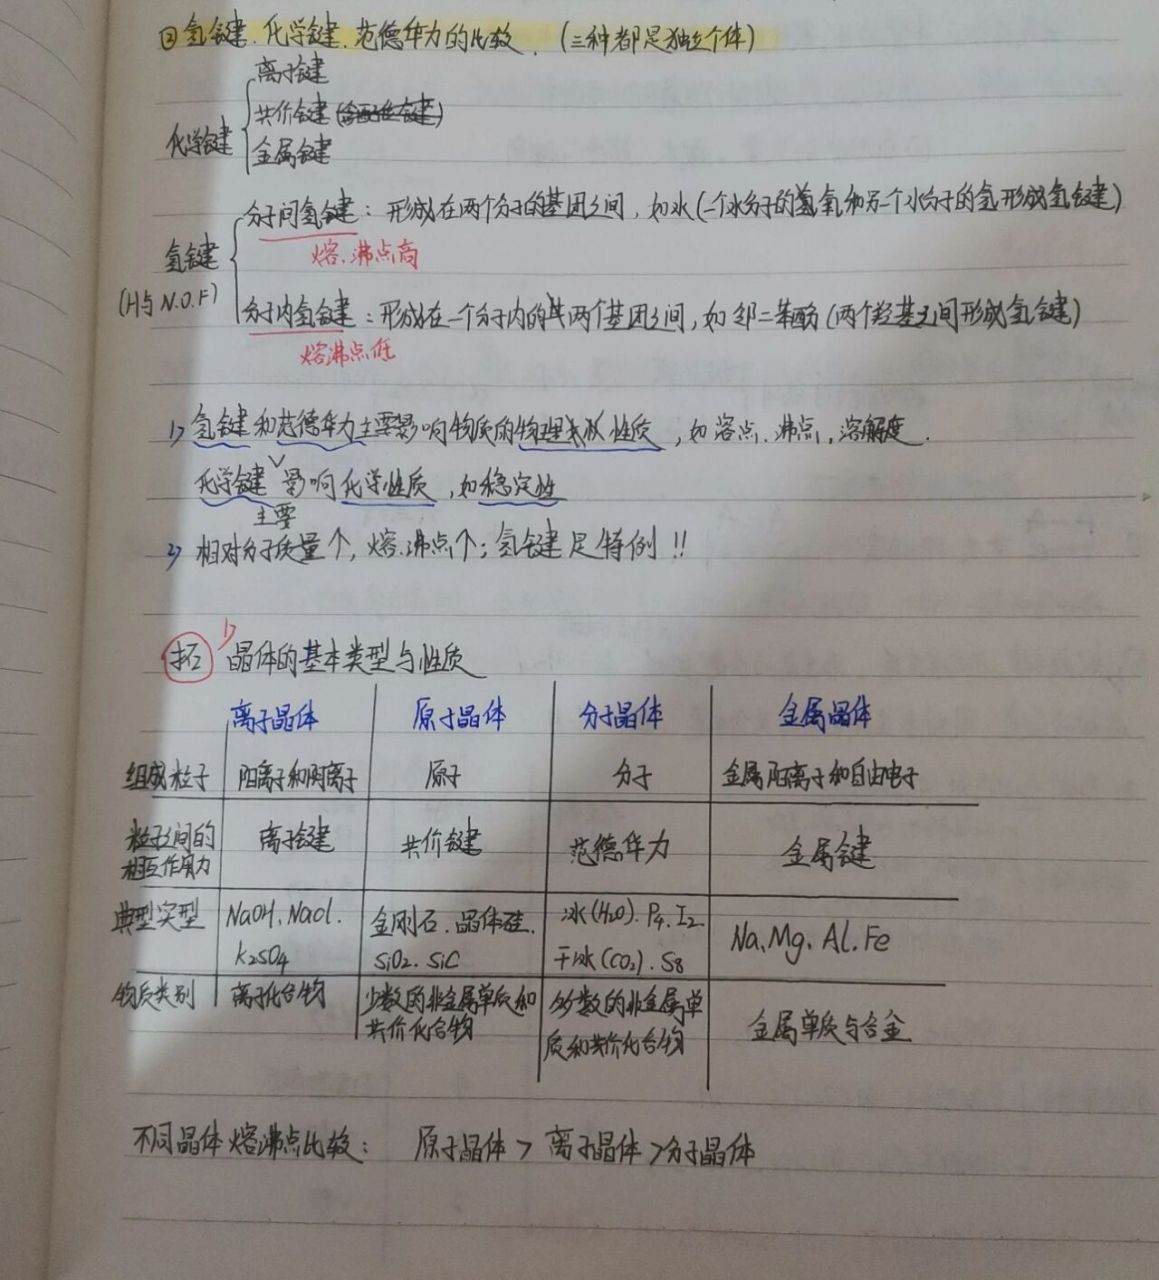 ②氢键、化学键、范德华力的比较.(三种都是独立个体)
离子键
共价键(含配位键)
化学键
金属键
分子间氢键:形成在两个分子的基团之间,如水(一个水分子的氧和另一个水分子的氢形成氢键)
熔、沸点高
氢键
(H与N.O.F)
分子内氢键:形成在一个分子内的其两个基团之间,如邻二苯酚(两个羟基之间形成氢键)
熔沸点低
1) 氢键和范德华力主要影响物质的物理性质,如溶点、沸点,溶解度.
化学键影响化学性质,如稳定性
主要
2) 相对分子质量↑,熔、沸点↑;氢键是特例!!
拓 1) 晶体的基本类型与性质
离子晶体 原子晶体 分子晶体 金属晶体
组成粒子 阳离子和阴离子 原子 分子 金属阳离子和自由电子
粒子之间的 离子键 共价键 范德华力 金属键
相互作用力
典型实型 NaOH、NaCl. 金刚石.晶体硅. 冰(H2O).P4.I2. Na、Mg、Al.Fe
K2SO4 SiO2.SiC 干冰(CO2).S8
物质类别 离子化合物 少数的非金属单质和 多数的非金属单 金属单质与合金
共价化合物 质和共价化合物
不同晶体熔沸点比较: 原子晶体>离子晶体>分子晶体